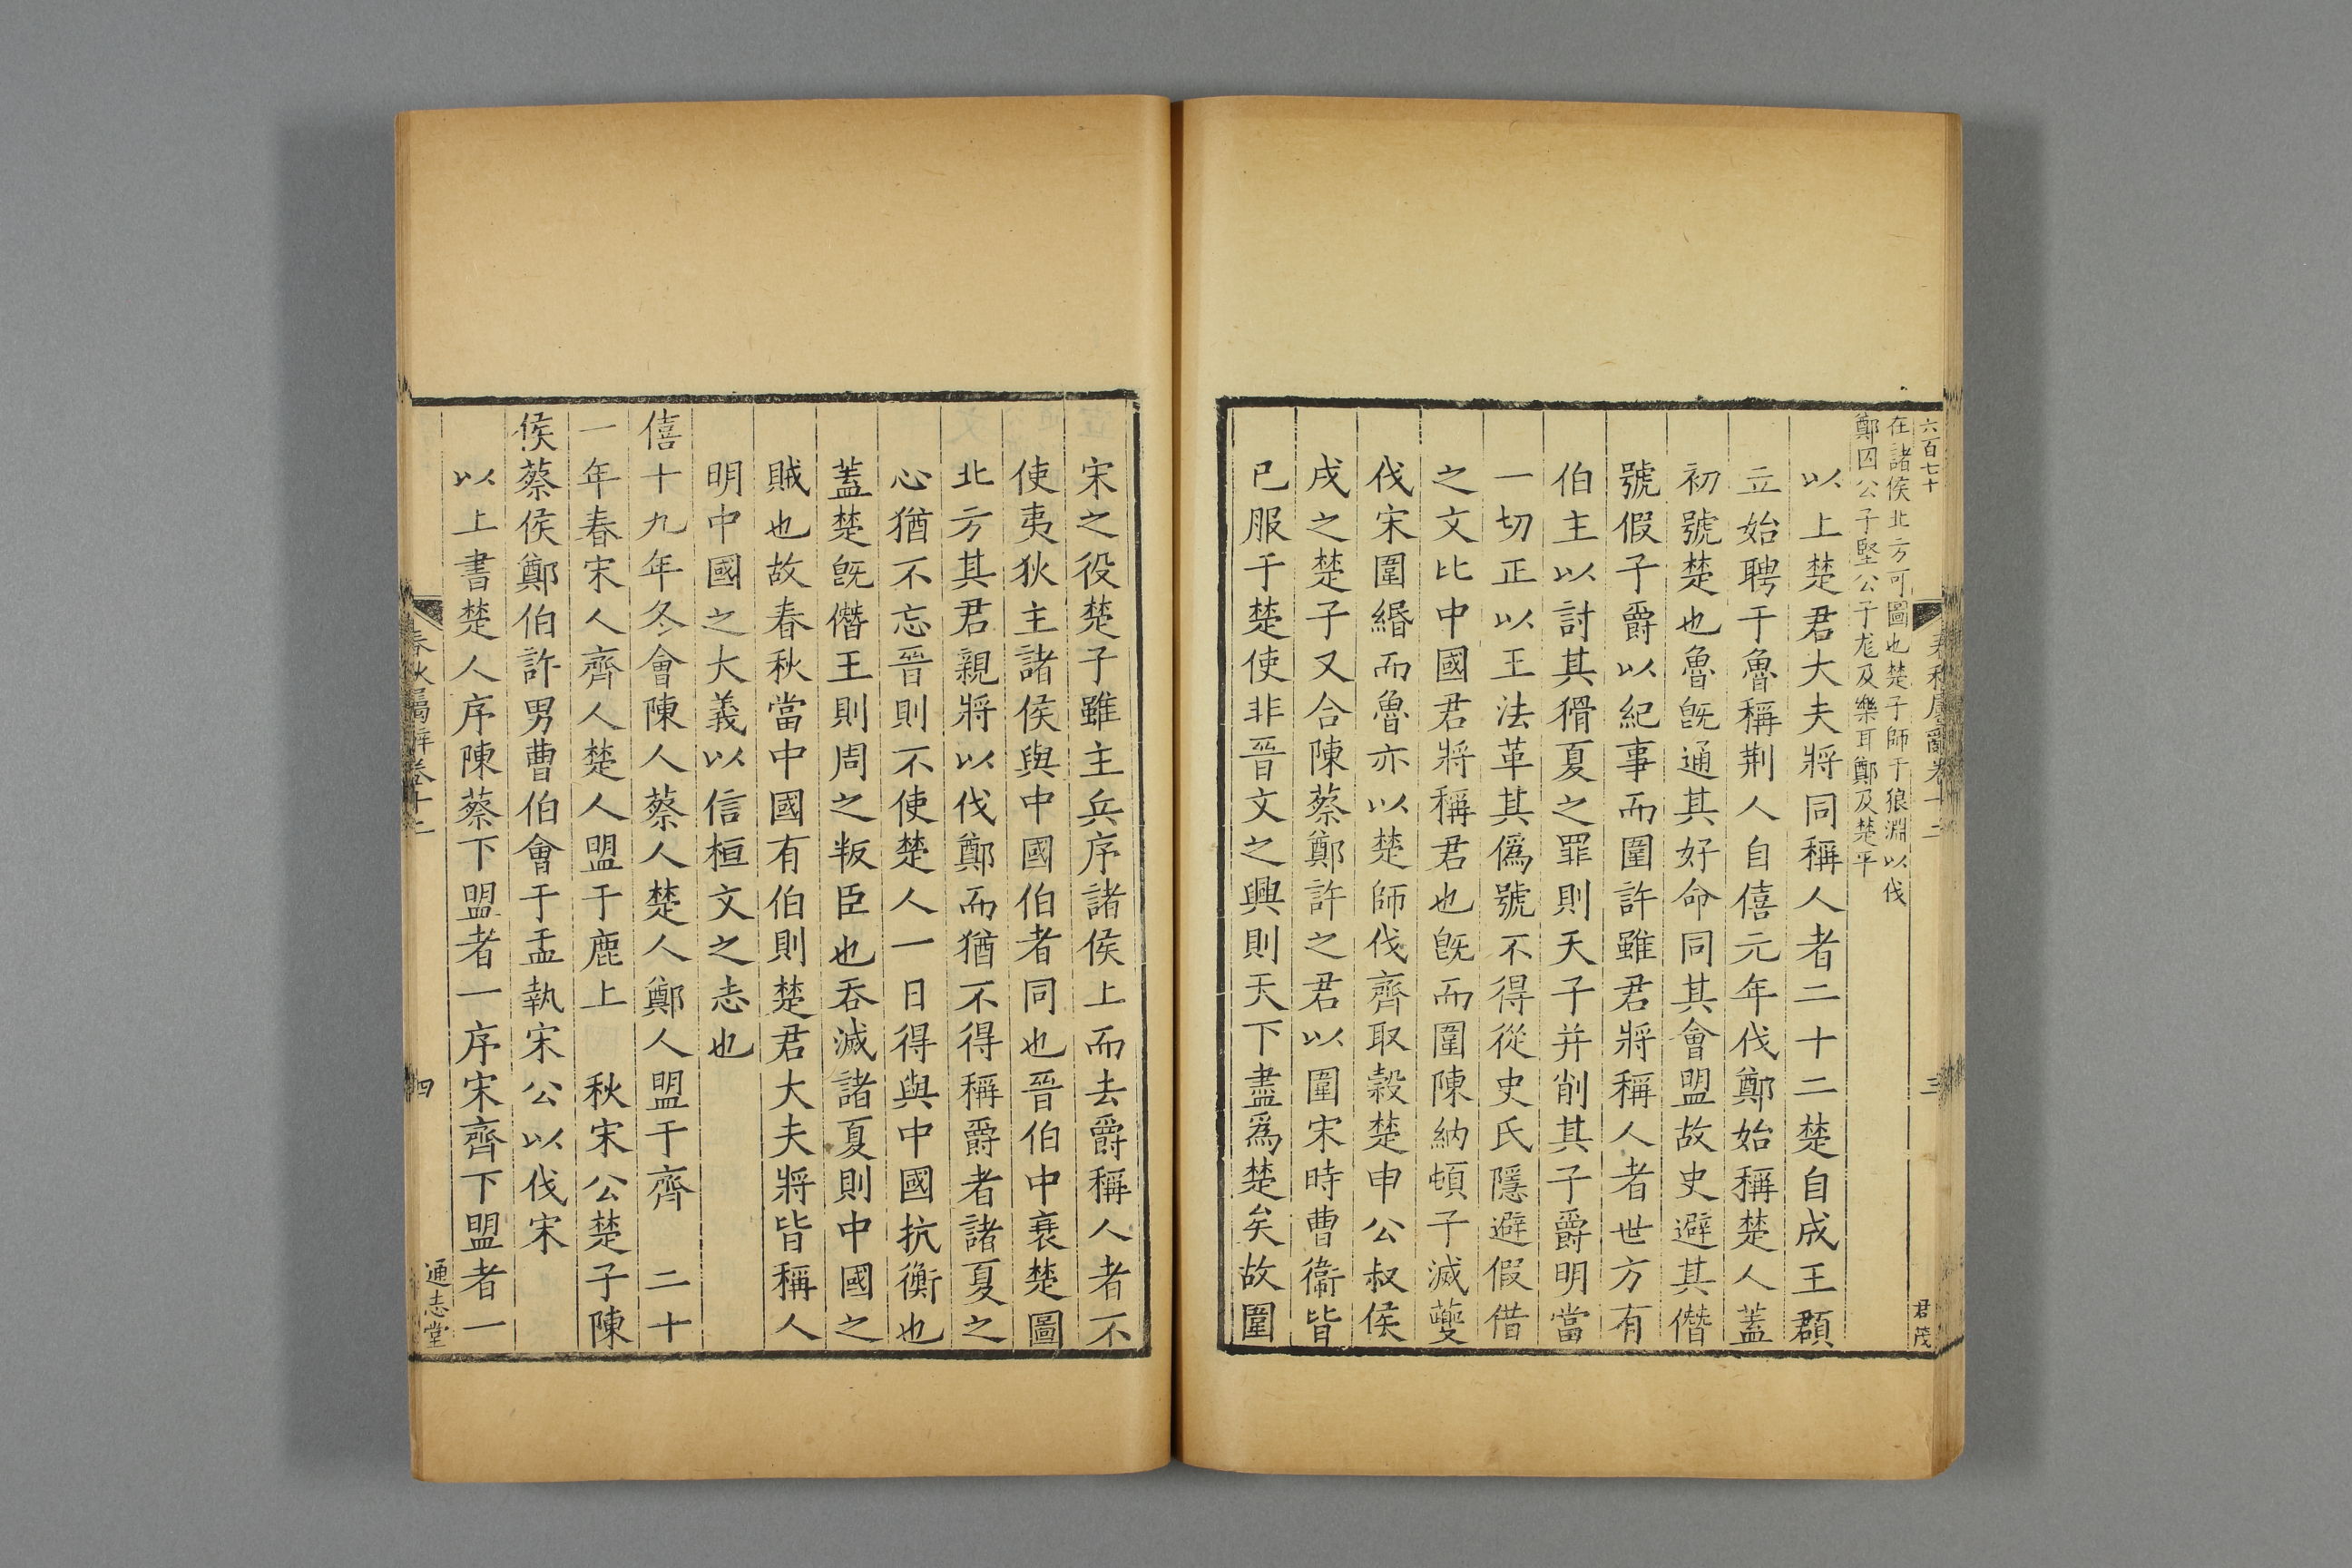 六百七十
春秋屬辭卷十二
三
君茂
在諸侯北方可圖也楚子師于狼淵以伐
鄭囚公子堅公子尨及樂耳鄭及楚平
以上楚君大夫將同稱人者二十二楚自成王頵
立始聘于魯稱荆人自僖元年伐鄭始稱楚人蓋
初號楚也魯旣通其好命同其會盟故史避其僭
號假子爵以紀事而圍許雖君將稱人者世方有
伯主以討其猾夏之罪則天子并削其子爵明當
一切正以王法革其僞號不得從史氏隱避假借
之文比中國君將稱君也旣而圍陳納頓子滅夔
伐宋圍緡而魯亦以楚師伐齊取穀楚申公叔侯
戌之楚子又合陳蔡鄭許之君以圍宋時曹衞皆
已服于楚使非晉文之興則天下盡爲楚矣故圍
宋之役楚子雖主兵序諸侯上而去爵稱人者不
使夷狄主諸侯與中國伯者同也晉伯中衰楚圖
北方其君親將以伐鄭而猶不得稱爵者諸夏之
心猶不忘晉則不使楚人一日得與中國抗衡也
蓋楚旣僭王則周之叛臣也吞滅諸夏則中國之
賊也故春秋當中國有伯則楚君大夫將皆稱人
明中國之大義以信桓文之志也
僖十九年冬會陳人蔡人楚人鄭人盟于齊　二十
一年春宋人齊人楚人盟于鹿上　秋宋公楚子陳
侯蔡侯鄭伯許男曹伯會于盂執宋公以伐宋
以上書楚人序陳蔡下盟者一序宋齊下盟者一
春秋屬辭卷十二
四
通志堂